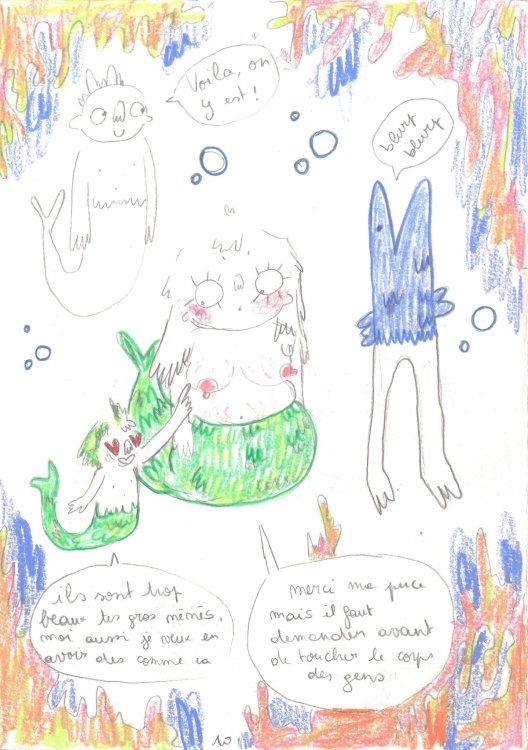 Voila, on
y est !
blurp
blurp
ils sont trop
beaux tes gros nénés,
moi aussi je veux en
avoir des comme ca
merci ma puce
mais il faut
demander avant
de toucher le corps
des gens
10